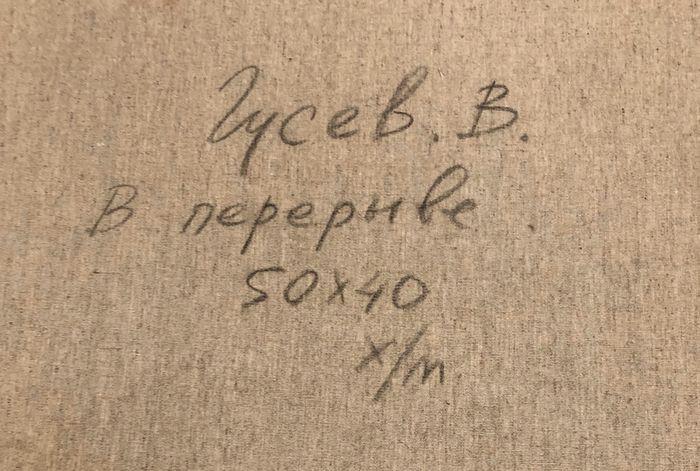 Гусев. В.
В перерыве.
50х40
х/м